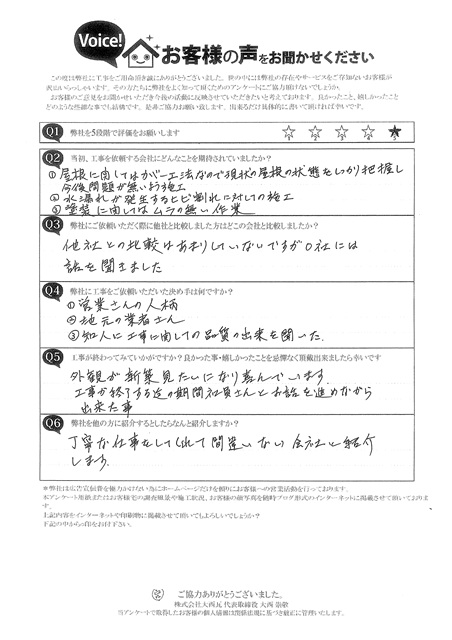 Voice!
お客様の声をお聞かせください
この度は弊社に工事をご用命頂き誠にありがとうございました。世の中には弊社の存在やサービスをご存知ないお客様が
沢山いらっしゃいます。その方たちに弊社をよく知って頂くためのアンケートにご協力頂けないでしょうか？
お客様のご意見をお聞かせいただき今後の活動に反映させていただきたいと考えております。良かったこと、嬉しかったこと
どのような些細な事でも結構です。是非ご協力お願い致します。出来るだけ具体的に書いて頂ければ幸いです。
Q1 弊社を5段階で評価をお願いします
1 2 3 4 5
Q2 当初、工事を依頼する会社にどんなことを期待されていましたか？
①屋根に関してはカバー工法なので現状の屋根の状態をしっかり把握し
今後問題が無いよう施工
②水漏れが発生するヒビ割れに対しての施工
③塗装に関してはムラの無い作業
Q3 弊社にご依頼いただく際に他社と比較しました方はどこの会社と比較しましたか？
他社との比較はあまりしていないですがO社には
話を聞きました
Q4 弊社に工事をご依頼いただいた決め手は何ですか？
①営業さんの人柄
②地元の業者さん
③知人に工事に関しての品質の出来を聞いた.
Q5 工事が終わってみていかがですか？良かった事・嬉しかったことを忌憚なく頂戴出来ましたら幸いです
外観が新築見たいになり喜んでいます.
工事が終了する迄の期間社員さんとお話を進めながら
出来た事
Q6 弊社を他の方に紹介するとしたらなんと紹介しますか？
丁寧な仕事をしてくれて間違いない会社と紹介
します.
＊弊社は広告宣伝費を極力かけない為にホームページだけを頼りにお客様への営業活動を行っております。
本アンケート用紙またはお客様宅の調査風景や施工状況、お客様の顔写真を随時ブログ形式のインターネットに掲載させて頂いております。
上記内容をインターネットや印刷物に掲載させて頂いてもよろしいでしょうか？
下記の中から○印をお付け下さい。
ご協力ありがとうございました。
株式会社大西瓦 代表取締役 大西 崇敬
当アンケートで取得したお客様の個人情報は関係法規に基づき厳正に管理いたします。